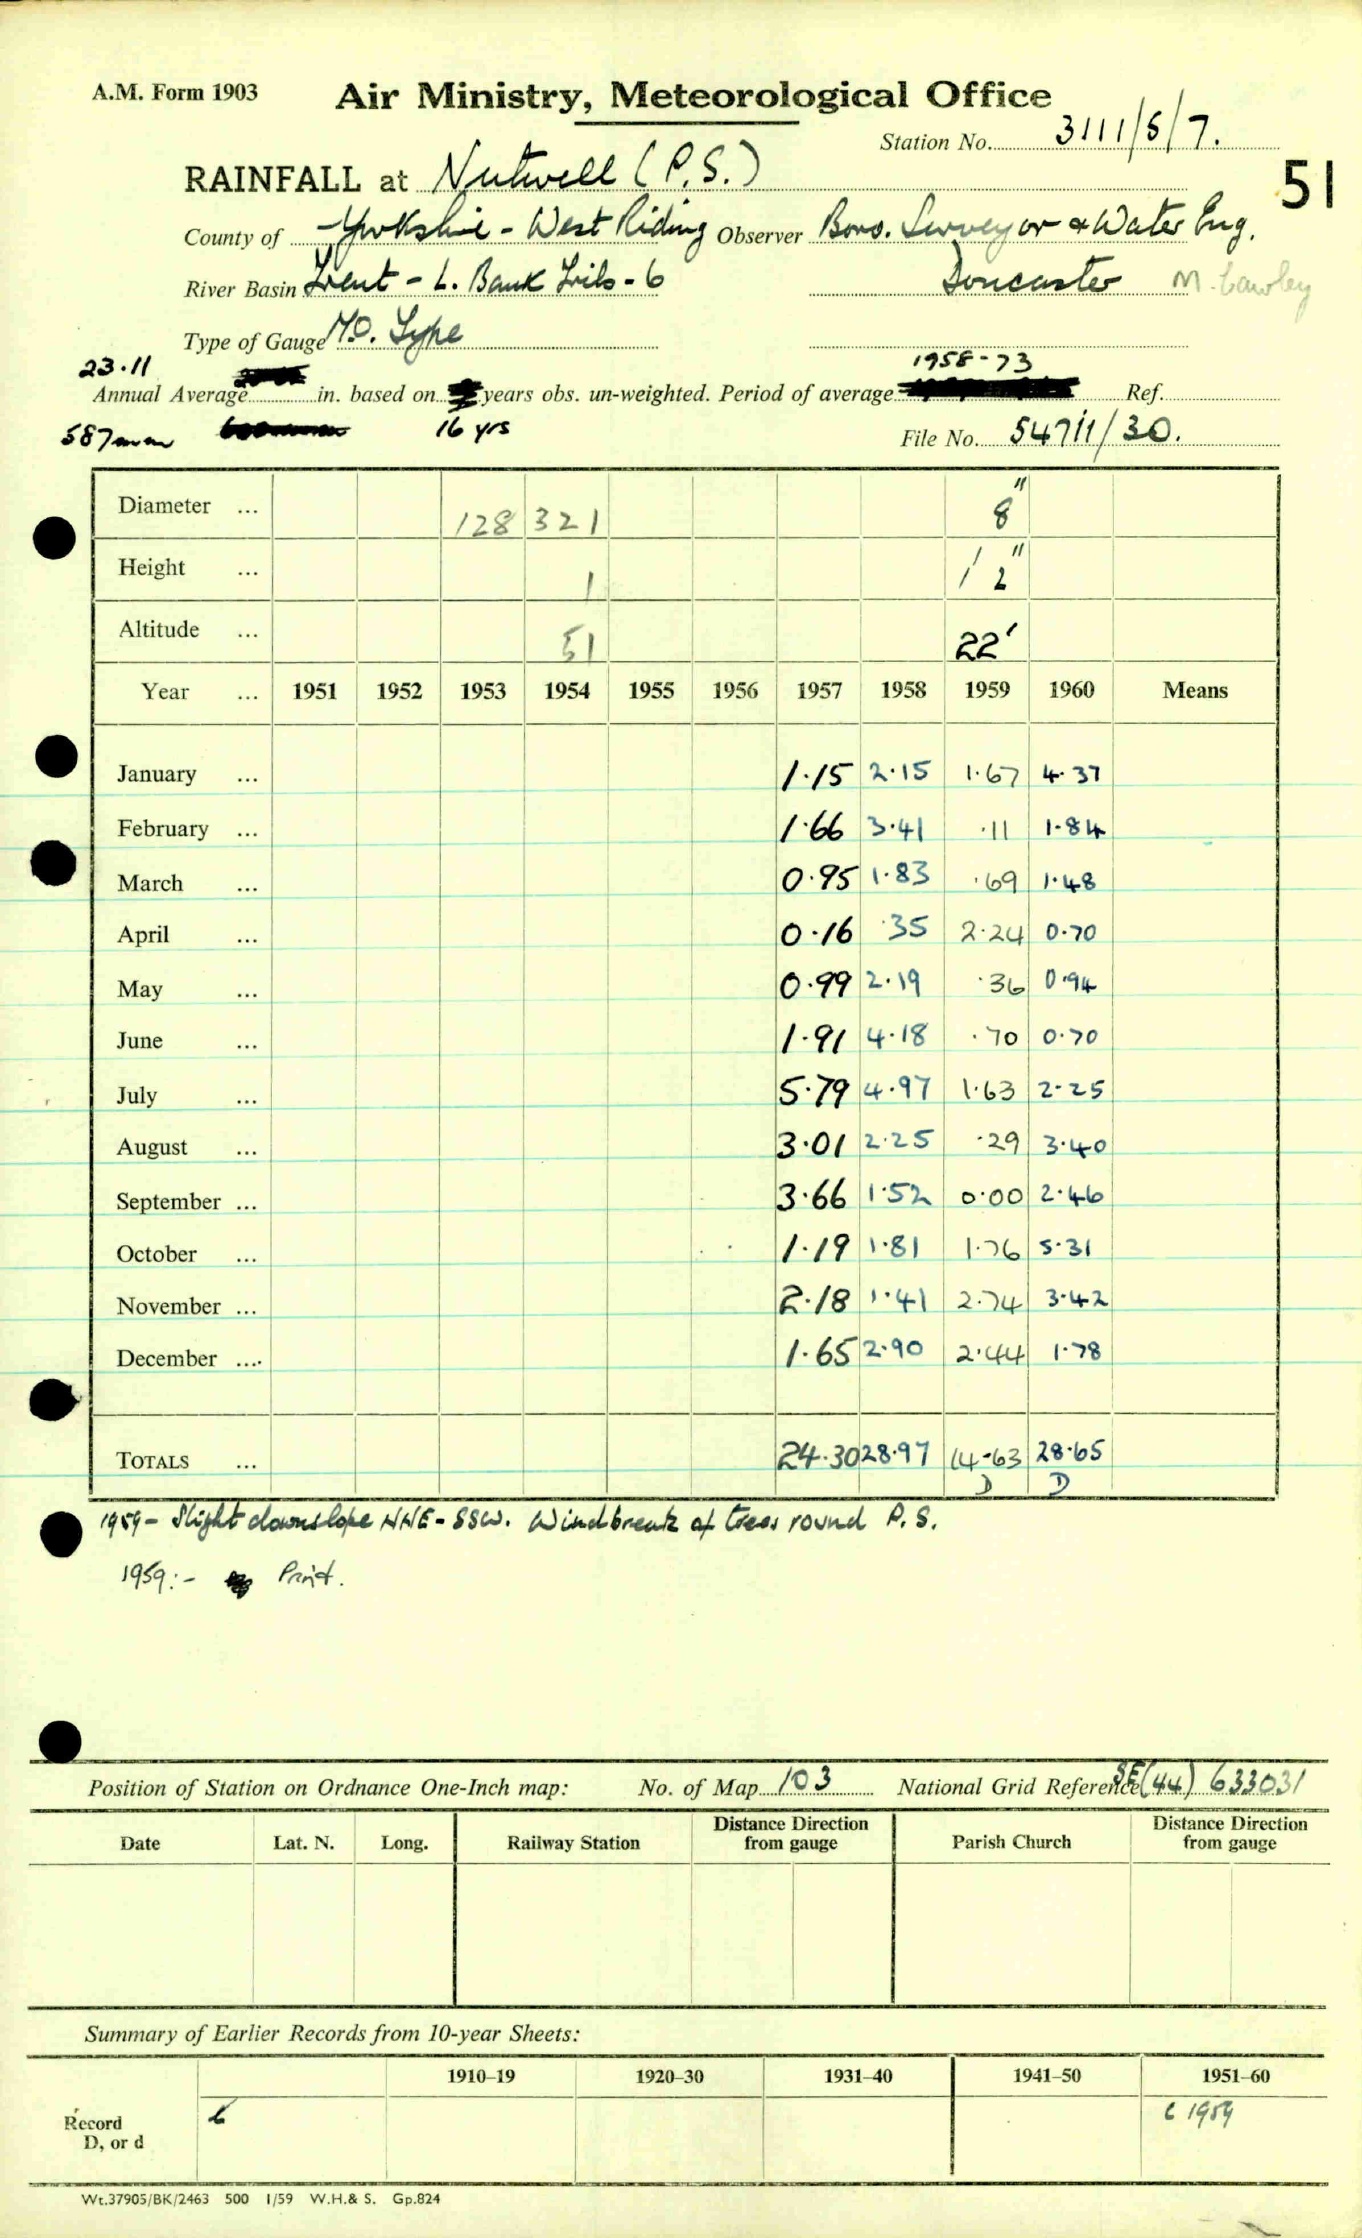 A.M. Form 1903
Air Ministry, Meteorological Office
Station No. 3111/5/7.
RAINFALL at Nutwell (P.S.)
51
County of Yorkshire - West Riding Observer Boro. Surveyor & Water Eng.
River Basin Trent - L. Bank Tribs - 6 Doncaster M. Cawley
Type of Gauge M.O. Type
23.11 1958-73
Annual Average in. based on years obs. un-weighted. Period of average Ref.
587mm 16 yrs File No. 54711/30.
Diameter ... 128 321 8"
Height ... 1 1' 2"
Altitude ... 51 22'
Year ... 1951 1952 1953 1954 1955 1956 1957 1958 1959 1960 Means
January ... 1.15 2.15 1.67 4.37
February ... 1.66 3.41 .11 1.84
March ... 0.95 1.83 .69 1.48
April ... 0.16 .35 2.24 0.70
May ... 0.99 2.19 .36 0.94
June ... 1.91 4.18 .70 0.70
July ... 5.79 4.97 1.63 2.25
August ... 3.01 2.25 .29 3.40
September ... 3.66 1.52 0.00 2.46
October ... 1.19 1.81 1.76 5.31
November ... 2.18 1.41 2.74 3.42
December .... 1.65 2.90 2.44 1.78
TOTALS ... 24.30 28.97 14.63 28.65
D D
1959 - Slight downslope NNE - SSW. Windbreak of trees round P.S.
1959:- Print.
Position of Station on Ordnance One-Inch map: No. of Map 103 National Grid Reference SE(44) 633031
Date Lat. N. Long. Railway Station Distance Direction from gauge Parish Church Distance Direction from gauge
Summary of Earlier Records from 10-year Sheets:
1910–19 1920–30 1931–40 1941–50 1951–60
Record 1959
D, or d
Wt.37905/BK/2463 500 1/59 W.H.& S. Gp.824